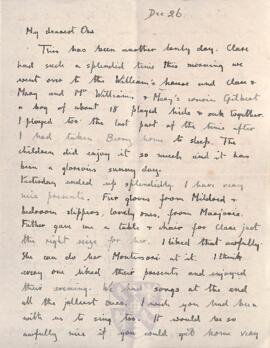 Dec 26
My dearest One
This has been another lovely day. Clare
had such a splendid time this morning we
went over to the William's house and Clare &
Mary and Mr Williams & Mary's cousin Gilbert
a boy of about 18 played hide & seek together.
I played too the last part of the time after
I had taken Benny home to sleep. The
children did enjoy it so much and it has
been a glorious sunny day.
Yesterday ended up splendidly. I have very
nice presents. Fur gloves from Mildred &
bedroom slippers, lovely ones, from Marjorie.
Father gave me a table & chair for Clare just
the right size for her. I liked that awfully.
She can do her Montessori at it. I think
every one liked their presents and enjoyed
their evening. We had songs at the end
all the jolliest ones. I wish you had been
with us to sing too. It would be so
awfully nice if you could get home very